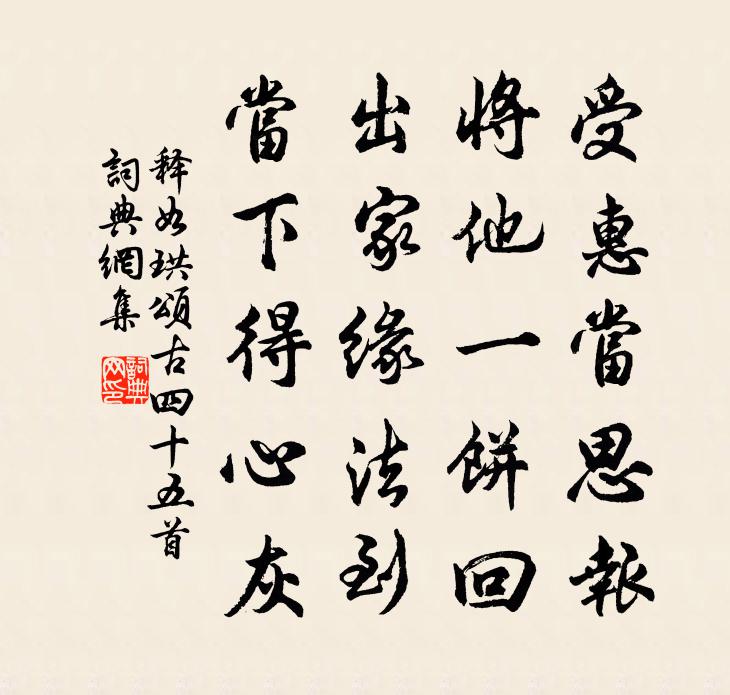 受惠當思報
將他一餅回
出家緣法到
當下得心灰
释如珙頌古四十五首
詞典網集
詞典网印